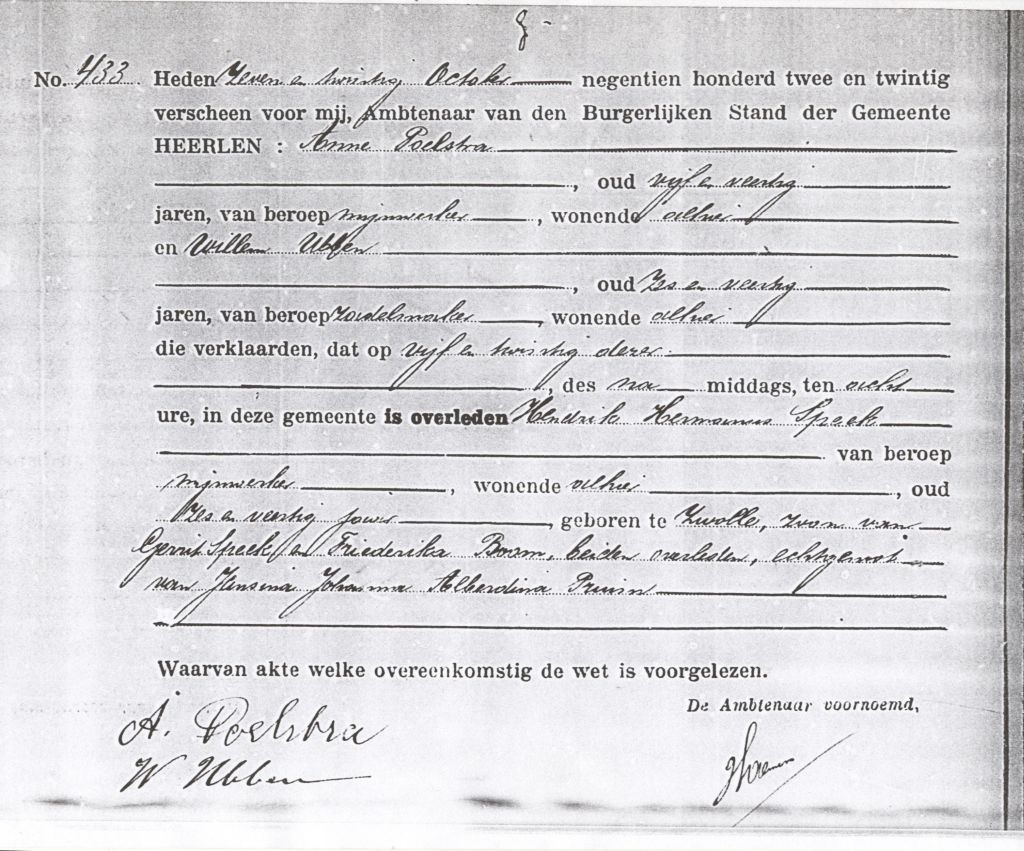 No. 433 Heden Zeven en twintig October negentien honderd twee en twintig
verscheen voor mij, Ambtenaar van den Burgerlijken Stand der Gemeente
HEERLEN : Anne Poelstra
, oud vijf en veertig
jaren, van beroep mijnwerker , wonende alhier
en Willem Ubben
, oud Zes en veertig
jaren, van beroep zadelmaker , wonende alhier
die verklaarden, dat op vijf en twintig dezer
, des na middags, ten acht
ure, in deze gemeente is overleden Hendrik Hermannus Speek
van beroep
mijnwerker , wonende alhier , oud
Zes en veertig jaar , geboren te Zwolle, zoon van
Gerrit Speek en Friederika Boom, beiden overleden, echtgenoot
van Jansina Johanna Alberdina Pruim
Waarvan akte welke overeenkomstig de wet is voorgelezen.
De Ambtenaar voornoemd,
A. Poelstra
W Ubben